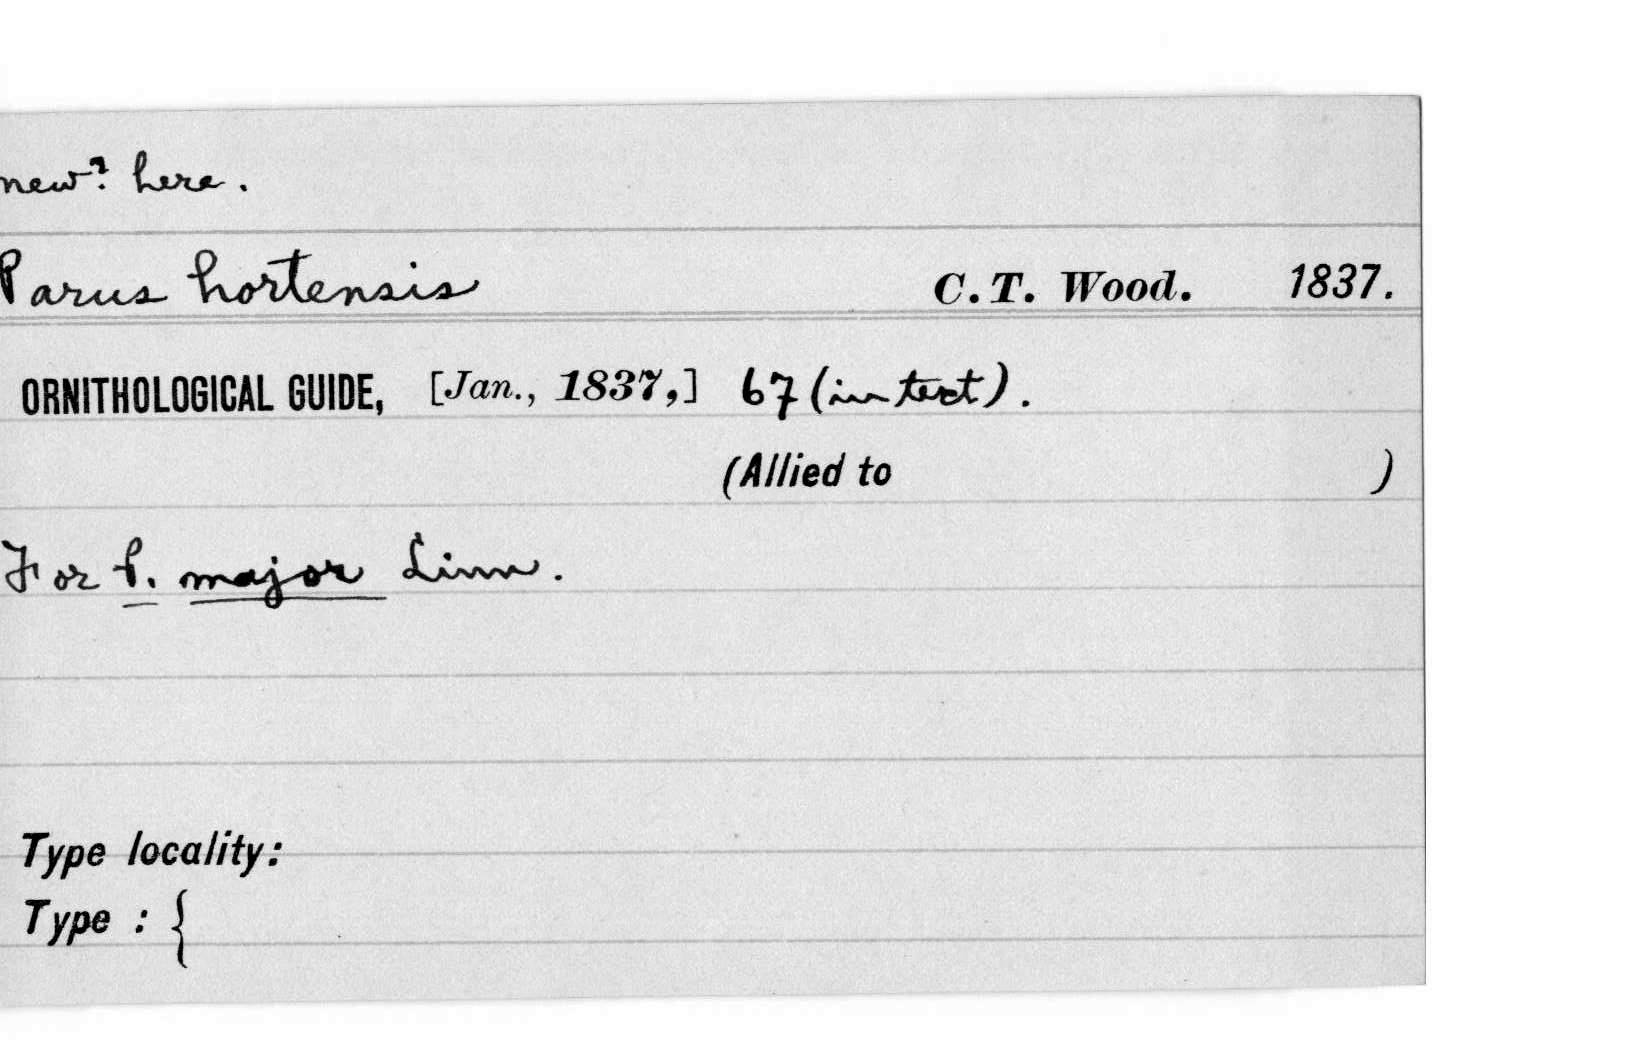 new? here.
Parus hortensis C. T. Wood. 1837.
ORNITHOLOGICAL GUIDE, [Jan., 1837,] 67 (in text).
(Allied to )
For P. major Linn.
Type locality:
Type : {